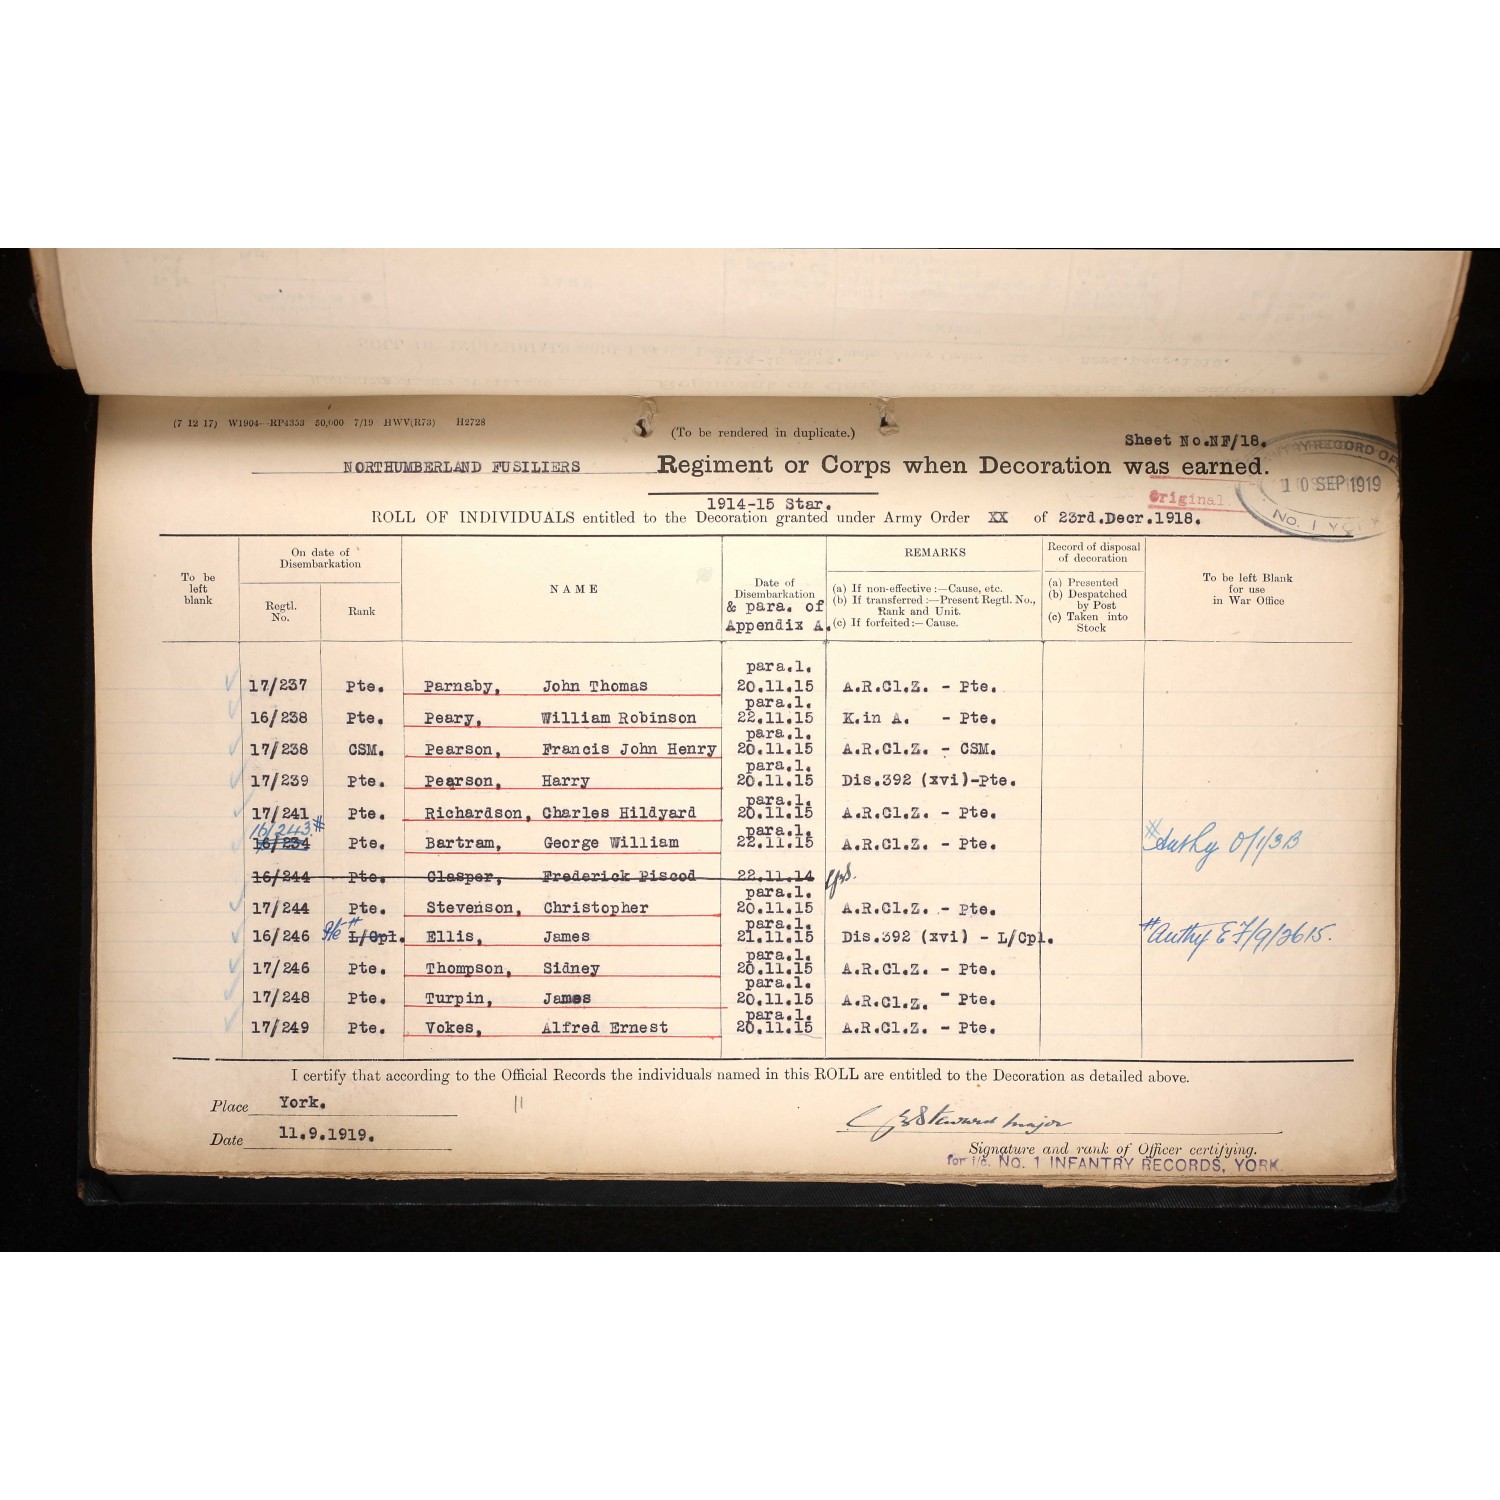 (7 12 17) W1904—RP4353 50,000 7/19 HWV(R73) H2728
(To be rendered in duplicate.)
Sheet No.NF/18.
NORTHUMBERLAND FUSILIERS Regiment or Corps when Decoration was earned.
10 SEP 1919
No. 1 YORK
Original
1914-15 Star.
ROLL OF INDIVIDUALS entitled to the Decoration granted under Army Order XX of 23rd.Decr.1918.
To be left blank
On date of Disembarkation
Regtl. No.
Rank
NAME
Date of Disembarkation & para. of Appendix A.
REMARKS
(a) If non-effective :—Cause, etc.
(b) If transferred :—Present Regtl. No., Rank and Unit.
(c) If forfeited :—Cause.
Record of disposal of decoration
(a) Presented
(b) Despatched by Post
(c) Taken into Stock
To be left Blank for use in War Office
para.1.
17/237 Pte. Parnaby, John Thomas 20.11.15 A.R.Cl.Z. - Pte.
para.1.
16/238 Pte. Peary, William Robinson 22.11.15 K.in A. - Pte.
para.1.
17/238 CSM. Pearson, Francis John Henry 20.11.15 A.R.Cl.Z. - CSM.
para.1.
17/239 Pte. Pearson, Harry 20.11.15 Dis.392 (xvi)-Pte.
para.1.
17/241 Pte. Richardson, Charles Hildyard 20.11.15 A.R.Cl.Z. - Pte.
16/243 # para.1.
16/234 Pte. Bartram, George William 22.11.15 A.R.Cl.Z. - Pte. # Authy O/1/3B
16/244 Pte. Clasper, Frederick Piscod 22.11.14
para.1.
17/244 Pte. Stevenson, Christopher 20.11.15 A.R.Cl.Z. - Pte.
para.1.
16/246 Pte # L/Cpl. Ellis, James 21.11.15 Dis.392 (xvi) - L/Cpl. # Authy EF/9/2615.
para.1.
17/246 Pte. Thompson, Sidney 20.11.15 A.R.Cl.Z. - Pte.
para.1.
17/248 Pte. Turpin, James 20.11.15 A.R.Cl.Z. - Pte.
para.1.
17/249 Pte. Vokes, Alfred Ernest 20.11.15 A.R.Cl.Z. - Pte.
I certify that according to the Official Records the individuals named in this ROLL are entitled to the Decoration as detailed above.
Place York.
Date 11.9.1919.
Major
Signature and rank of Officer certifying.
for i/c. No. 1 INFANTRY RECORDS, YORK.